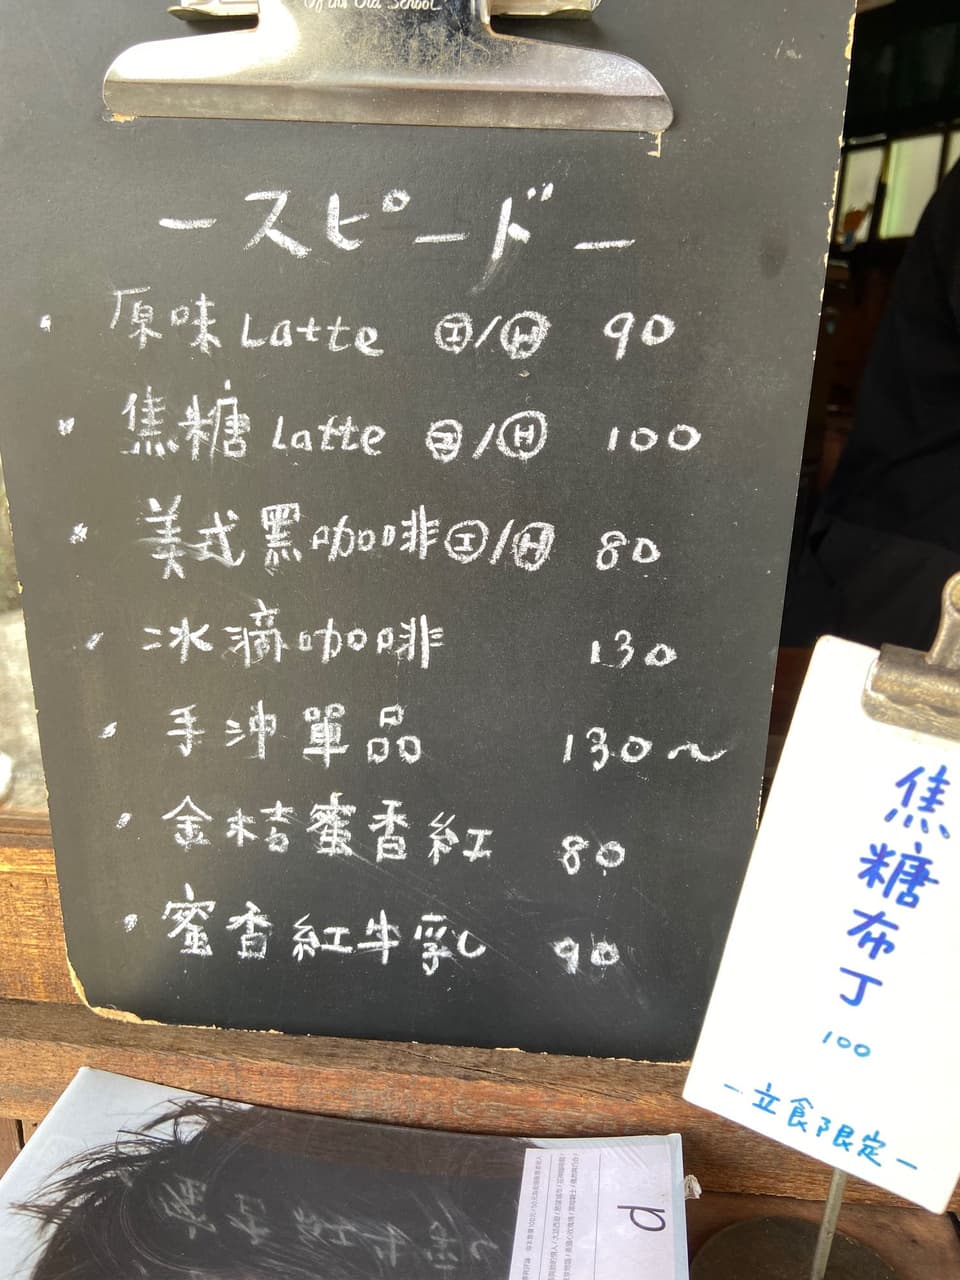 Of the Old School
－スピード－
・原味Latte Ⓘ/Ⓗ 90
・焦糖Latte Ⓘ/Ⓗ 100
・美式黑咖啡Ⓘ/Ⓗ 80
・冰滴咖啡 130
・手沖單品 130～
・金桔蜜香紅 80
・蜜香紅牛乳 90
焦糖布丁
100
－立食限定－
d